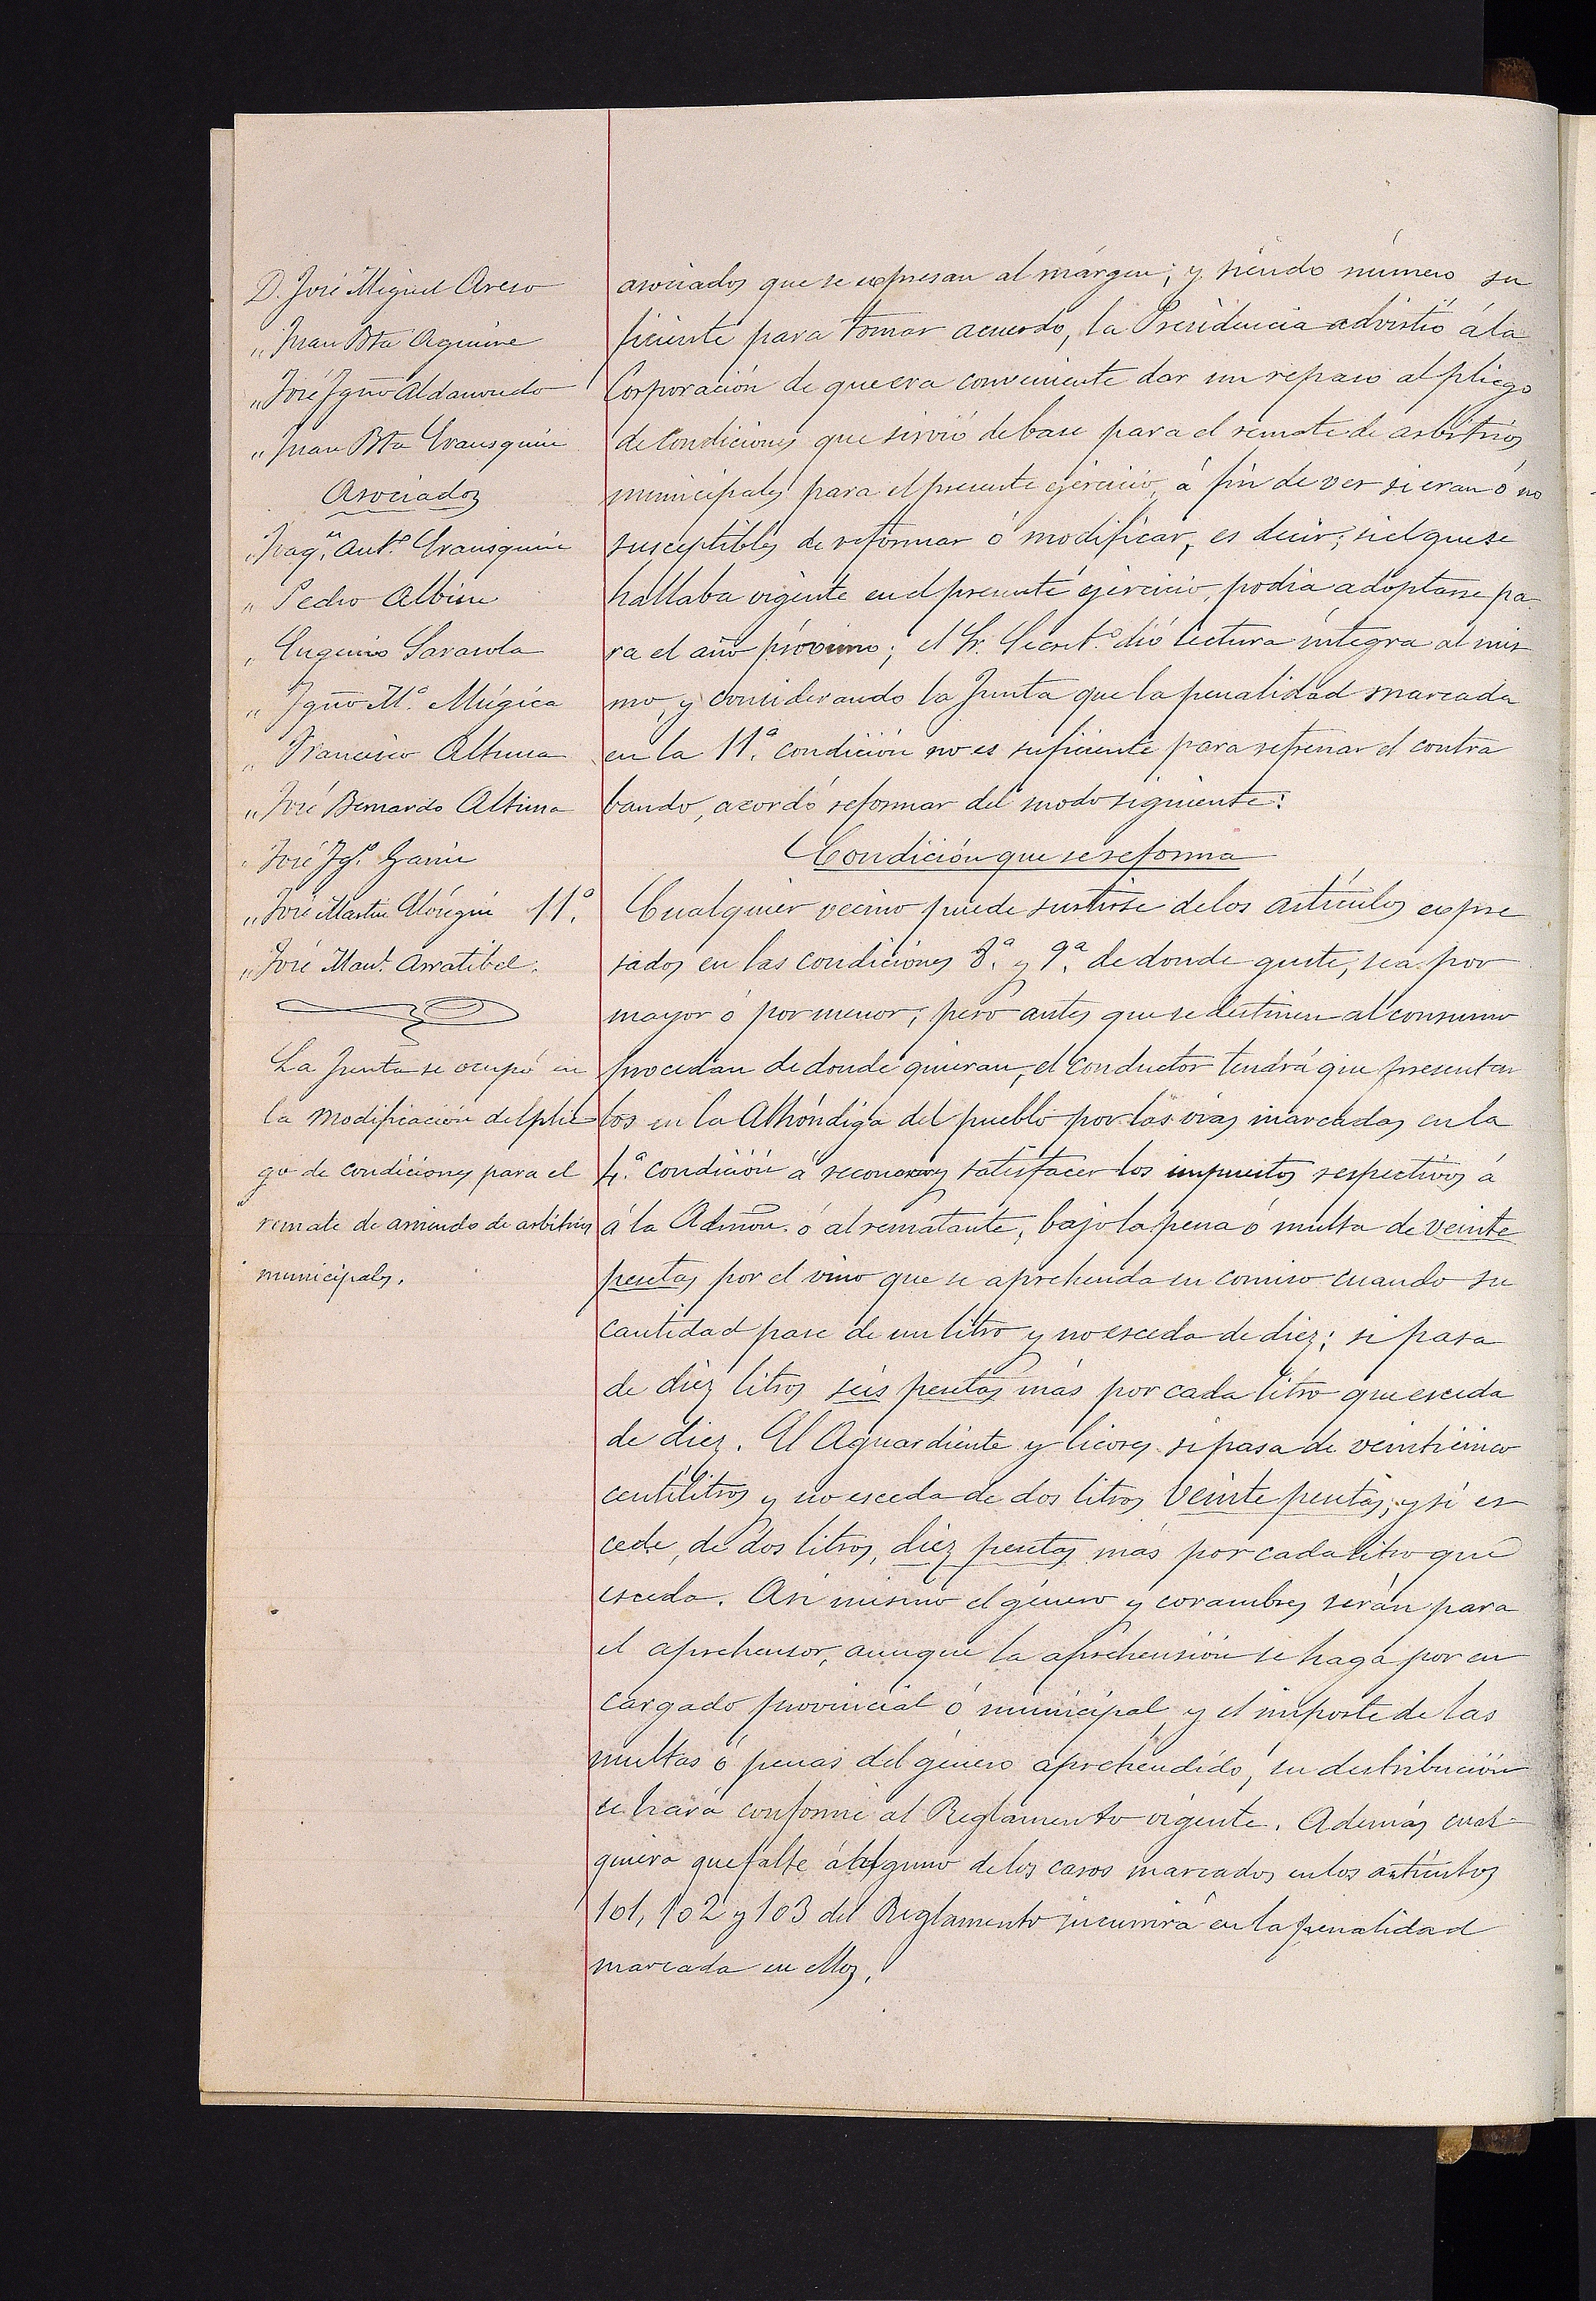 D. José Miguel Areso
„ Juan Bta Aguirre
„ José Ygno Aldanondo
„ Juan Bta Erausquin
Asociados
„ Joaqn. Anto. Erausquin
„ Pedro Albisu
„ Eugenio Sarasola
„ Ygno Ma. Múgica
„ Francisco Altuna
„ José Bernardo Altuna
„ José Ygo. Garin
„ José Martin
„ José Manl. Arratibel.
La Junta se ocupó en
la modificación del plie-
go de condiciones para el
remate de arriendo de arbitrios
municipales.
asociados que se expresan al márgen; y siendo número su
ficiente para tomar acuerdo, la Presidencia advirtió á la
Corporación de que era conveniente dar un repaso al pliego
de Condiciones que sirvió de base para el remate de arbitrios
municipales para el presente ejercicio, á fin de ver si eran ó no
susceptibles de reformar ó modificar, es decir; si el que se
hallaba vigente en el presente ejercicio, podia adoptarse pa
ra el año próximo; el Sr. Secreto. dió lectura íntegra al mis
mo, y considerando la Junta que la penalidad marcada
en la 11.ª condición no es suficiente para refrenar el contra
bando, acordó reformar del modo siguiente:
Condición que se reforma
11.ª Cualquier vecino puede surtirse de los artículos expre
sados en las condiciones 8.ª y 9.ª de donde guste, sea por
mayor ó por menor; pero antes que se destinen al consumo
procedan de donde quieran, el conductor tendrá que presentar
los en la Alhóndiga del pueblo por las vias marcadas en la
4.ª condición á reconocer y satisfacer los impuestos respectivos á
á la Admon. ó al rematante, bajo la pena ó multa de veinte
pesetas por el vino que se aprehenda en comiso cuando su
cantidad pase de un litro y no esceda de diez; si pasa
de diez litros seis pesetas más por cada litro que esceda
de diez. El Aguardiente y licores si pasa de veinticinco
centilitros y no esceda de dos litros veinte pesetas, y si es
cede, de dos litros, diez pesetas más por cada litro que
esceda. Asi mismo el género y corambres serán para
el aprehensor, aunque la aprehensión se haga por en
cargado provincial ó municipal, y el importe de las
multas ó penas del género aprehendido, su distribución
se hará conforme al Reglamento vigente. Además cual
quiera que falte á alguno de los casos marcados en los artículos
101, 102 y 103 del Reglamento incurrirá en la penalidad
marcada en ellos.